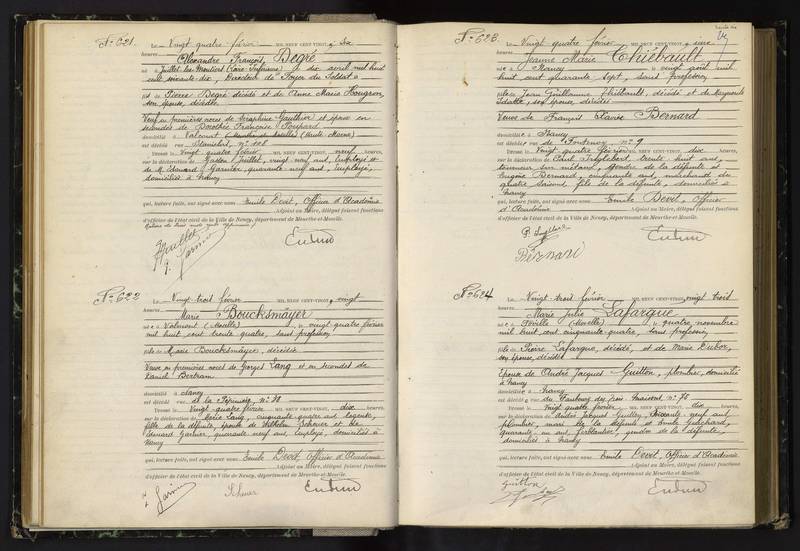 N° 621.
Le Vingt quatre février MIL NEUF CENT VINGT, à six
heures
Alexandre François Degré
né à Juillé les Moutiers (Loire Inférieure) le dix avril mil huit
cent soixante dix, Directeur du Foyer du Soldat
fils de Pierre Degré décédé et de Anne Marie Hougron,
son épouse, décédée
Veuf en premières noces de Séraphine Gauthier et époux en
secondes de Dorothée Françoise Poupard
domicilié à Valcourt (Haute Marne)
est décédé rue Stanislas, n° 108
Dressé le Vingt quatre février MIL NEUF CENT VINGT, neuf heures,
sur la déclaration de Gaston Juillet, vingt neuf ans, employé et
de M. Edouard Garnier, quarante neuf ans, employé,
domiciliés à Nancy
qui, lecture faite, ont signé avec nous Emile Devit, Officier d'Académie
Adjoint au Maire, délégué faisant fonctions
d'officier de l'état civil de la Ville de Nancy, département de Meurthe-et-Moselle.
N° 622
Le Vingt trois février MIL NEUF CENT VINGT, à vingt
heures
Marie Boucksmayer
née à Valmont (Moselle) le vingt quatre février
mil huit cent trente quatre, sans profession
fille de Marie Boucksmayer, décédée
Veuve en premières noces de Georges Lang et en secondes de
Daniel Bertram
domiciliée à Nancy
est décédée rue de la Pépinière, n° 28
Dressé le Vingt quatre février MIL NEUF CENT VINGT, dix heures,
sur la déclaration de Marie Lang, cinquante quatre ans,
fille de la défunte, épouse de Wilhelm Scheuer et de
Edouard Garnier, quarante neuf ans, employé, domiciliés à
Nancy
qui, lecture faite, ont signé avec nous Emile Devit, Officier d'Académie
Adjoint au Maire, délégué faisant fonctions
d'officier de l'état civil de la Ville de Nancy, département de Meurthe-et-Moselle.
Garnier Scheuer
N° 623.
Le Vingt quatre février MIL NEUF CENT VINGT, à une
heures
Jeanne Marie Thiébault
née à Nancy le vingt août mil
huit cent quarante sept, sans profession
fille de Jean Guillaume Thiébault, décédé et de Marguerite
son épouse, décédée
Veuve de François Xavier Bernard
domiciliée à Nancy
est décédée rue de Fontenoy n° 9
Dressé le Vingt quatre février MIL NEUF CENT VINGT, dix heures,
sur la déclaration de Paul Inglebert, trente huit ans,
tourneur sur métaux, gendre de la défunte et
Eugène Bernard, cinquante ans, marchand des
quatre saisons, fils de la défunte, domiciliés à
Nancy
qui, lecture faite, ont signé avec nous Emile Devit, Officier
d'Académie Adjoint au Maire, délégué faisant fonctions
d'officier de l'état civil de la Ville de Nancy, département de Meurthe-et-Moselle.
Bernard
N° 624
Le Vingt trois février MIL NEUF CENT VINGT, vingt trois
heures
Marie Julie Lafargue
née à Norville (Moselle) le quatre novembre
mil huit cent cinquante quatre, sans profession
fille de Pierre Lafargue, décédé, et de Marie Dubox,
son épouse, décédée
Epouse de André Jacques Guitton, plombier, domicilié
à Nancy
domiciliée à Nancy
est décédée rue du Faubourg des Trois Maisons n° 78
Dressé le Vingt quatre février MIL NEUF CENT VINGT, dix heures,
sur la déclaration de André Jacques Guitton, soixante neuf ans
plombier, mari de la défunte et Emile Guichard,
quarante un ans, ferblantier, gendre de la défunte,
domiciliés à Nancy
qui, lecture faite, ont signé avec nous Emile Devit, Officier d'Académie
Adjoint au Maire, délégué faisant fonctions
d'officier de l'état civil de la Ville de Nancy, département de Meurthe-et-Moselle.
Guitton